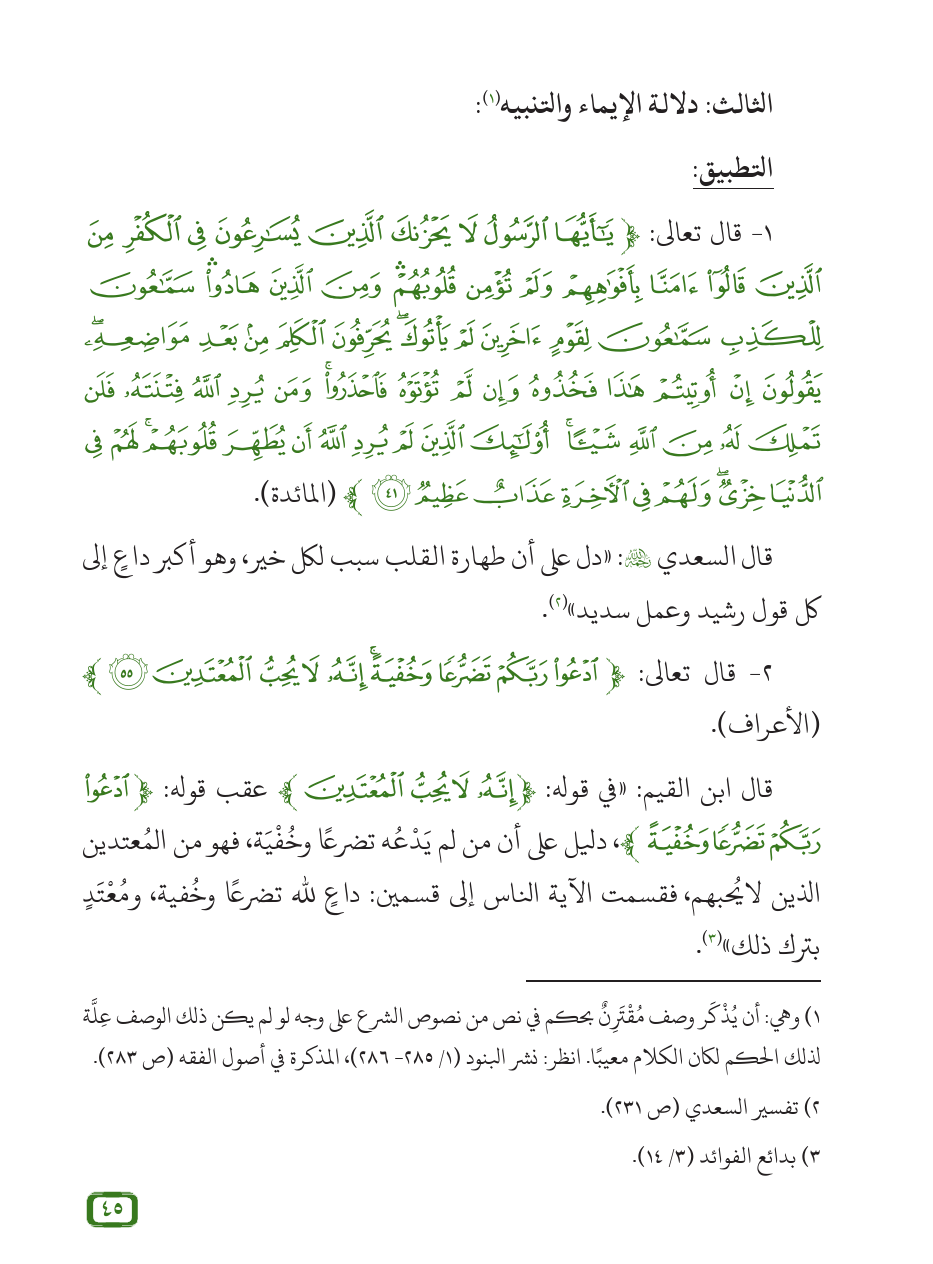 الثالث: دلالة الإيماء والتنبيه(١):
التطبيق:
١- قال تعالى: ﴿ يَٰٓأَيُّهَا ٱلرَّسُولُ لَا يَحۡزُنكَ ٱلَّذِينَ يُسَٰرِعُونَ فِي ٱلۡكُفۡرِ مِنَ
ٱلَّذِينَ قَالُوٓاْ ءَامَنَّا بِأَفۡوَٰهِهِمۡ وَلَمۡ تُؤۡمِن قُلُوبُهُمۡۛ وَمِنَ ٱلَّذِينَ هَادُواْۛ سَمَّٰعُونَ
لِلۡكَذِبِ سَمَّٰعُونَ لِقَوۡمٍ ءَاخَرِينَ لَمۡ يَأۡتُوكَۖ يُحَرِّفُونَ ٱلۡكَلِمَ مِنۢ بَعۡدِ مَوَاضِعِهِۦۖ
يَقُولُونَ إِنۡ أُوتِيتُمۡ هَٰذَا فَخُذُوهُ وَإِن لَّمۡ تُؤۡتَوۡهُ فَٱحۡذَرُواْۚ وَمَن يُرِدِ ٱللَّهُ فِتۡنَتَهُۥ فَلَن
تَمۡلِكَ لَهُۥ مِنَ ٱللَّهِ شَيۡـًٔاۚ أُوْلَٰٓئِكَ ٱلَّذِينَ لَمۡ يُرِدِ ٱللَّهُ أَن يُطَهِّرَ قُلُوبَهُمۡۚ لَهُمۡ فِي
ٱلدُّنۡيَا خِزۡيٞۖ وَلَهُمۡ فِي ٱلۡأٓخِرَةِ عَذَابٌ عَظِيمٞ ٤١ ﴾ (المائدة).
قال السعدي ﵀: «دل على أن طهارة القلب سبب لكل خير، وهو أكبر داعٍ إلى
كل قول رشيد وعمل سديد»(٢).
٢- قال تعالى: ﴿ ٱدۡعُواْ رَبَّكُمۡ تَضَرُّعٗا وَخُفۡيَةًۚ إِنَّهُۥ لَا يُحِبُّ ٱلۡمُعۡتَدِينَ ٥٥ ﴾
(الأعراف).
قال ابن القيم: «في قوله: ﴿إِنَّهُۥ لَا يُحِبُّ ٱلۡمُعۡتَدِينَ ﴾ عقب قوله: ﴿ ٱدۡعُواْ
رَبَّكُمۡ تَضَرُّعٗا وَخُفۡيَةً ﴾، دليل على أن من لم يَدْعُه تضرعًا وخُفْيَة، فهو من المُعتدين
الذين لايُحبهم، فقسمت الآية الناس إلى قسمين: داعٍ لله تضرعًا وخُفية، ومُعْتَدٍ
بترك ذلك»(٣).
١) وهي: أن يُذْكَر وصف مُقْتَرِنٌ بحكم في نص من نصوص الشرع على وجه لو لم يكن ذلك الوصف عِلَّة
لذلك الحكم لكان الكلام معيبًا. انظر: نشر البنود (١/ ٢٨٥- ٢٨٦)، المذكرة في أصول الفقه (ص ٢٨٣).
٢) تفسير السعدي (ص ٢٣١).
٣) بدائع الفوائد (٣/ ١٤).
٤٥